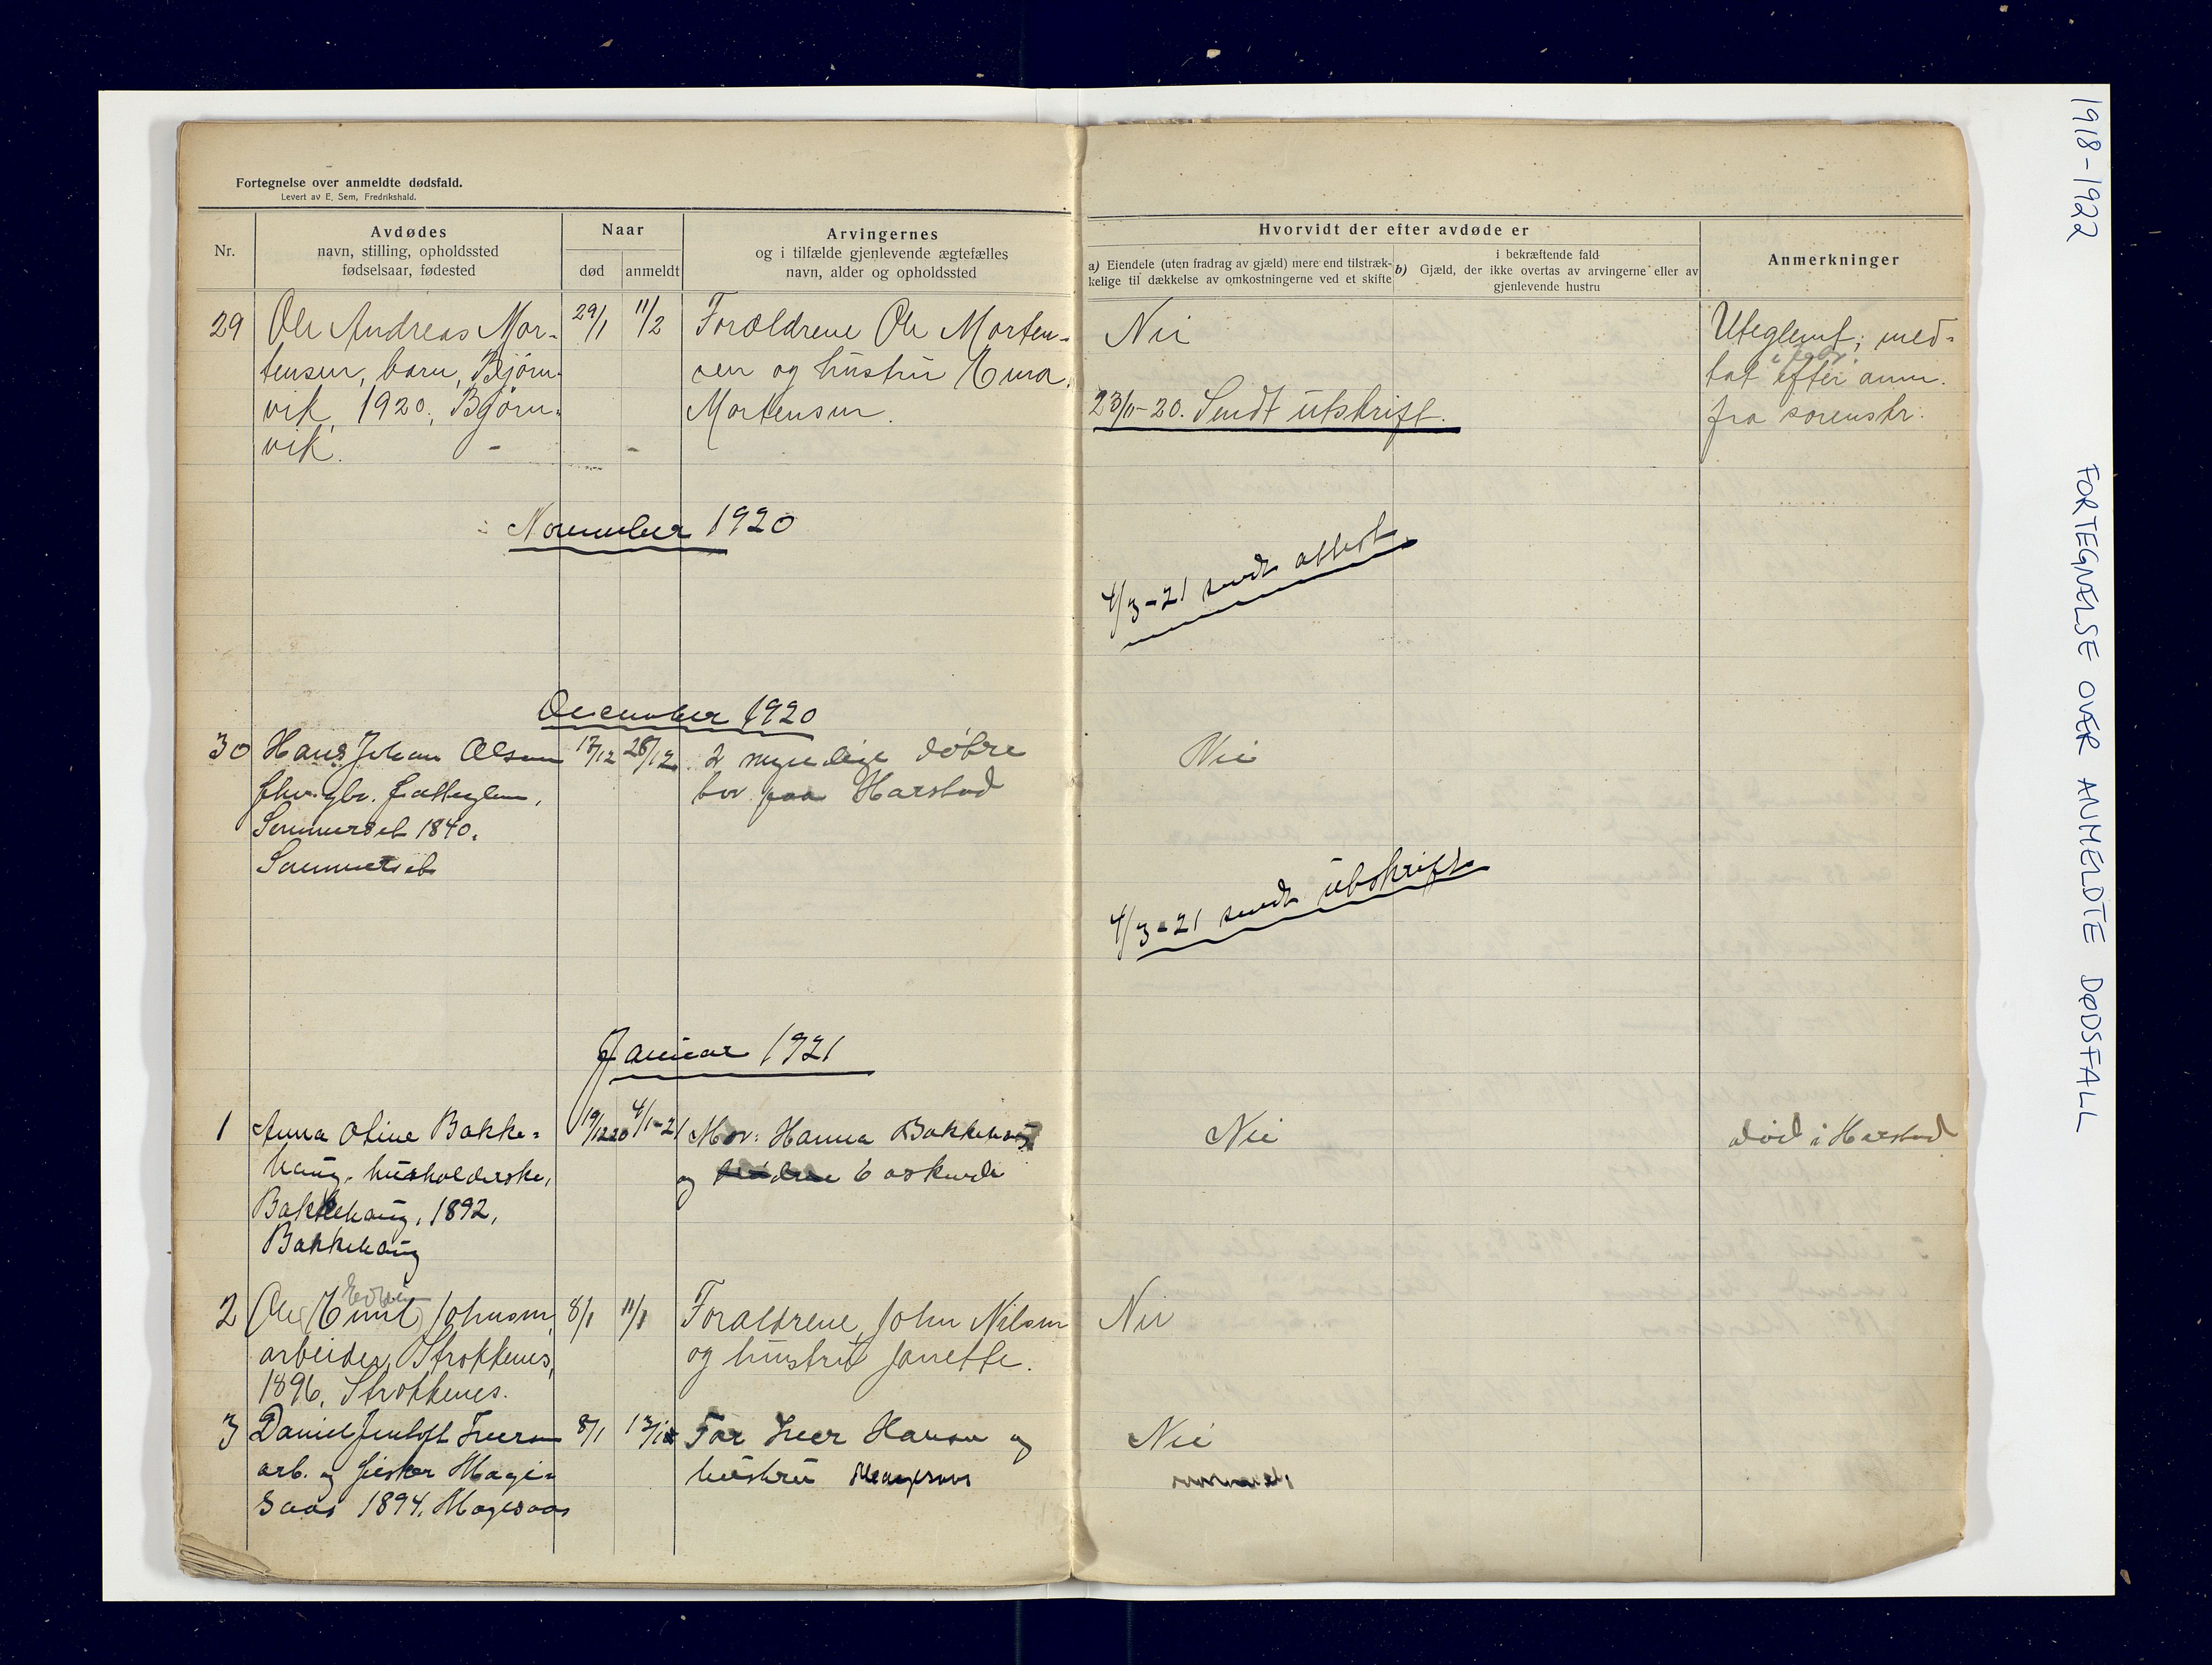 Fortegnelse over anmeldte dødsfald.
Levert av E. Sem, Fredrikshald.
Nr.
Avdødes
navn, stilling, opholdssted
fødselsaar, fødested
Naar
død
anmeldt
Arvingernes
og i tilfælde gjenlevende ægtefælles
navn, alder og opholdssted
Hvorvidt der efter avdøde er
a) Eiendele (uten fradrag av gjæld) mere end tilstræk-
kelige til dækkelse av omkostningerne ved et skifte
i bekræftende fald
b) Gjæld, der ikke overtas av arvingerne eller av
gjenlevende hustru
Anmerkninger
29
Ole Andreas Mor-
tensen, barn, Bjørn-
vik, 1920, Bjørn-
vik.
29/1
11/2
Forældrene Ole Morten-
sen og hustru
Mortensen.
Nei
23/11-20. Sendt utskrift.
Uteglemt; med-
tat efter anm.
fra sorenskr.
November 1920
4/3-21 sendt attest
December 1920
30
Hans Johan Olsen
Sommerset 1840.
Sommerset
17/12
28/12
2 myndige døtre
bor paa Harstad
Nei
4/3-21 sendt utskrift
Januar 1921
1
Anna Otine Bakke-
haug, husholderske,
Bakkehaug, 1892,
Bakkehaug
19/12 20
4/1-21
Mor: Hanna Bakkehaug
og 6 søskende
Nei
død i Harstad
2
Ole Emil Johnsen,
arbeider, Strokkenes,
1896, Strokkenes.
8/1
11/1
Forældrene, John Nilsen
og hustru Janette.
Nei
3
Daniel Jentoft Iversen
arb. og fisker Hage-
saas 1894. Hagesaas
8/1
13/1
Far Iver Hansen og
hustru
Nei
1918-1922
FORTEGNÆLSE OVÆR ANMELDTE DØDSFALL